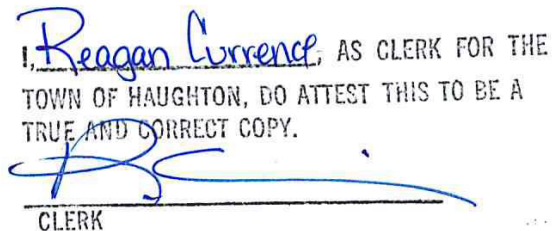 I, Reagan Currence, AS CLERK FOR THE
TOWN OF HAUGHTON, DO ATTEST THIS TO BE A
TRUE AND CORRECT COPY.
CLERK